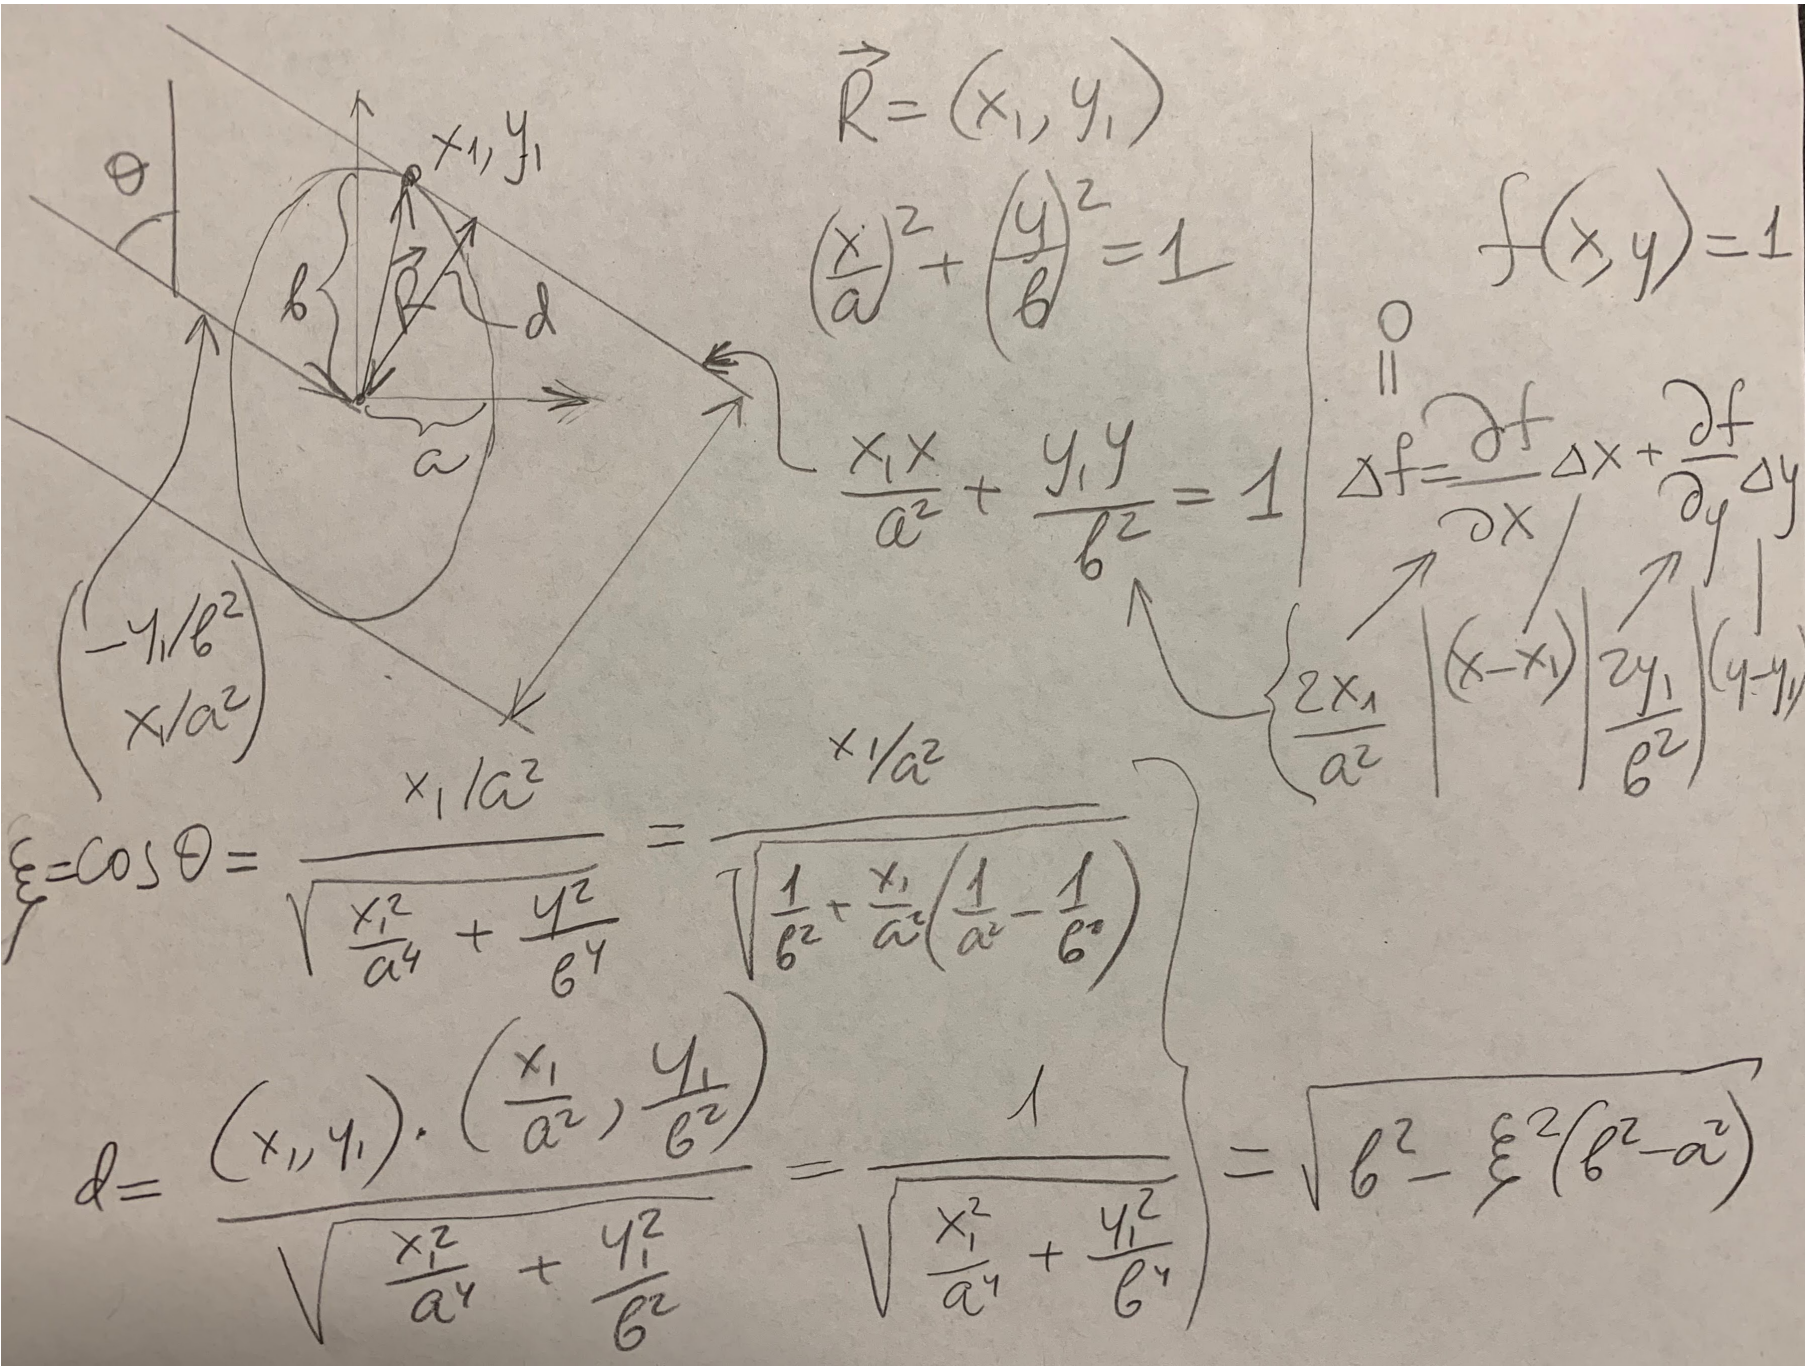 θ
x₁, y₁
b
R⃗
d
a
(-y₁/b²
x₁/a²)
R⃗ = (x₁, y₁)
(x/a)² + (y/b)² = 1
x₁x/a² + y₁y/b² = 1
f(x,y) = 1
0
||
Δf = ∂f/∂x Δx + ∂f/∂y Δy
{ 2x₁/a² | (x-x₁) | 2y₁/b² | (y-y₁)
ξ = cos θ = (x₁/a²) / √(x₁²/a⁴ + y²/b⁴) = (x₁/a²) / √(1/b² + x₁/a² (1/a² - 1/b²))
d = (x₁, y₁)·(x₁/a², y₁/b²) / √(x₁²/a⁴ + y₁²/b²) = 1 / √(x₁²/a⁴ + y₁²/b⁴) } = √(b² - ξ²(b²-a²))